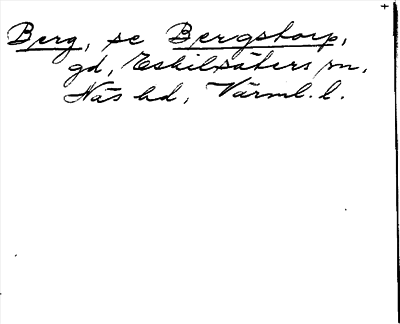 Berg, se Bergstorp,
gd, Eskilsäters sn,
Näs hd, Värml. l.